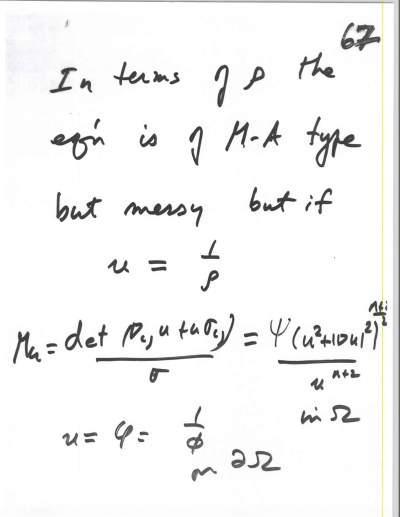 67
In terms of ρ the
eqn is of M-A type
but messy but if
u = 1/ρ
Mu = det (∇ij u + uσij) / σ = ψ (u² + |Du|²)^((n+1)/2) / u^(n+2)
in Ω
u = φ = 1/ϕ
on ∂Ω